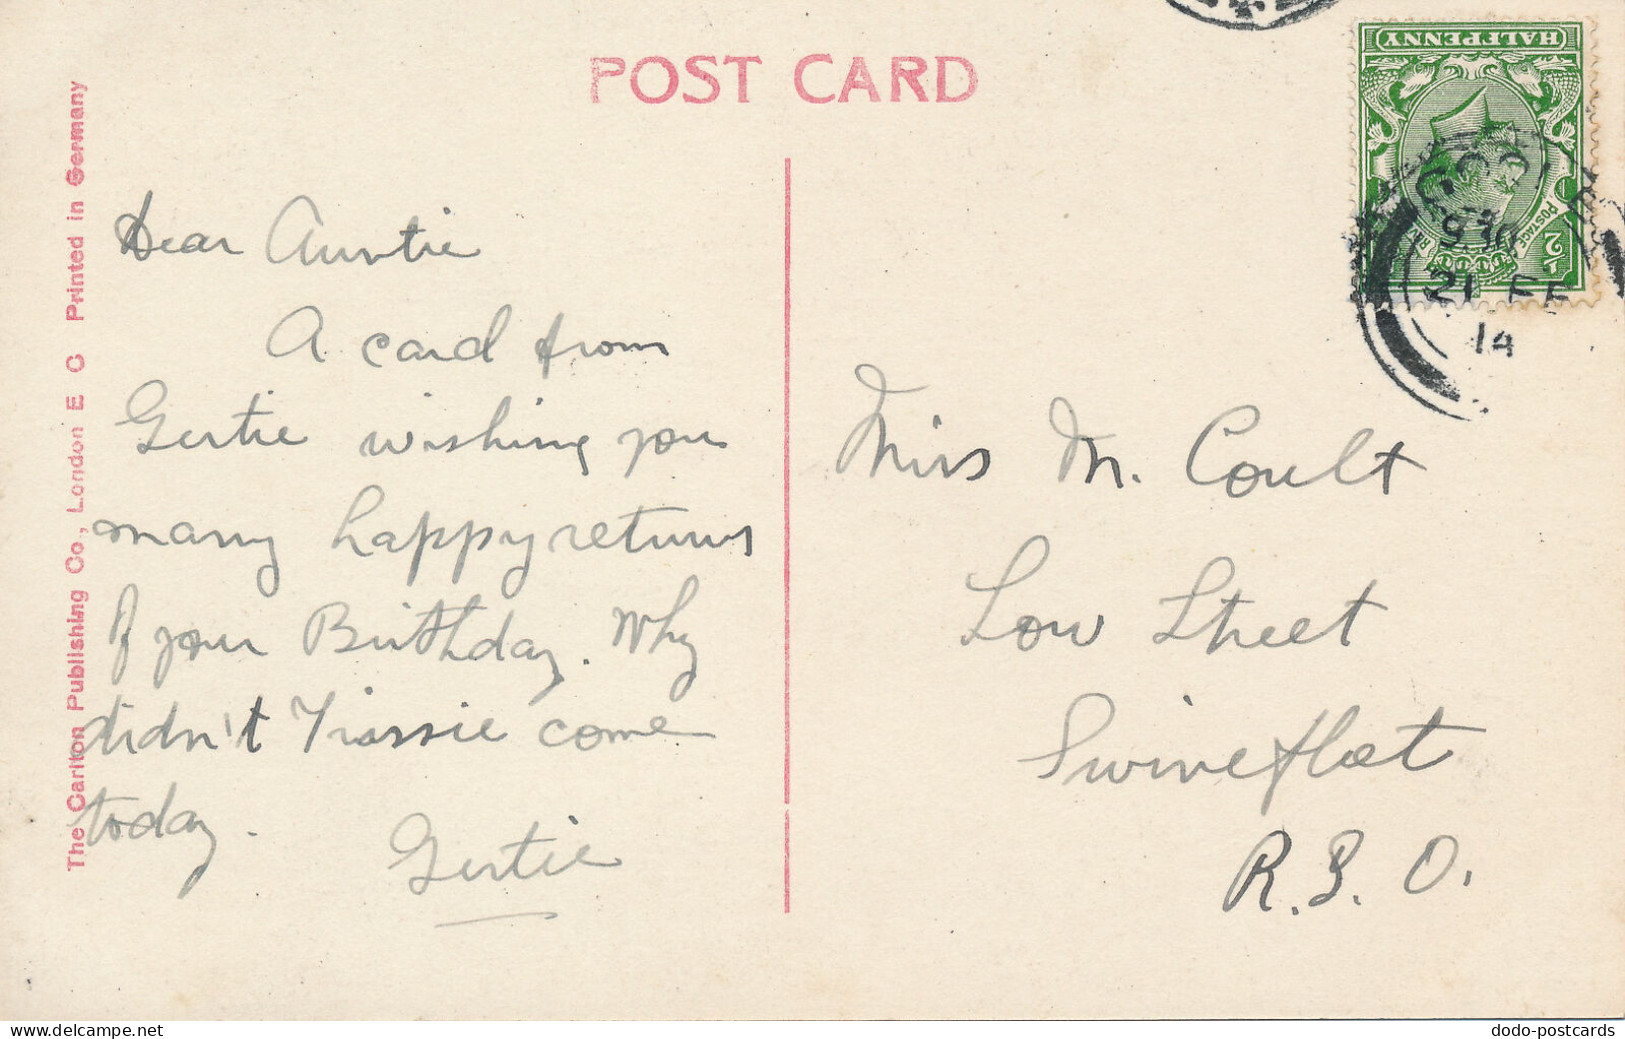 POST CARD
The Carlton Publishing Co., London E C Printed in Germany
HALFPENNY
POSTAGE
½
21 FE
14
Dear Auntie
A card from
Gertie wishing you
many happy returns
of your Birthday. Why
didn't Tissie come
today.
Gertie
Miss M. Coult
Low Street
Swineflat
R.B.O.
dodo-postcards.com
www.delcampe.net